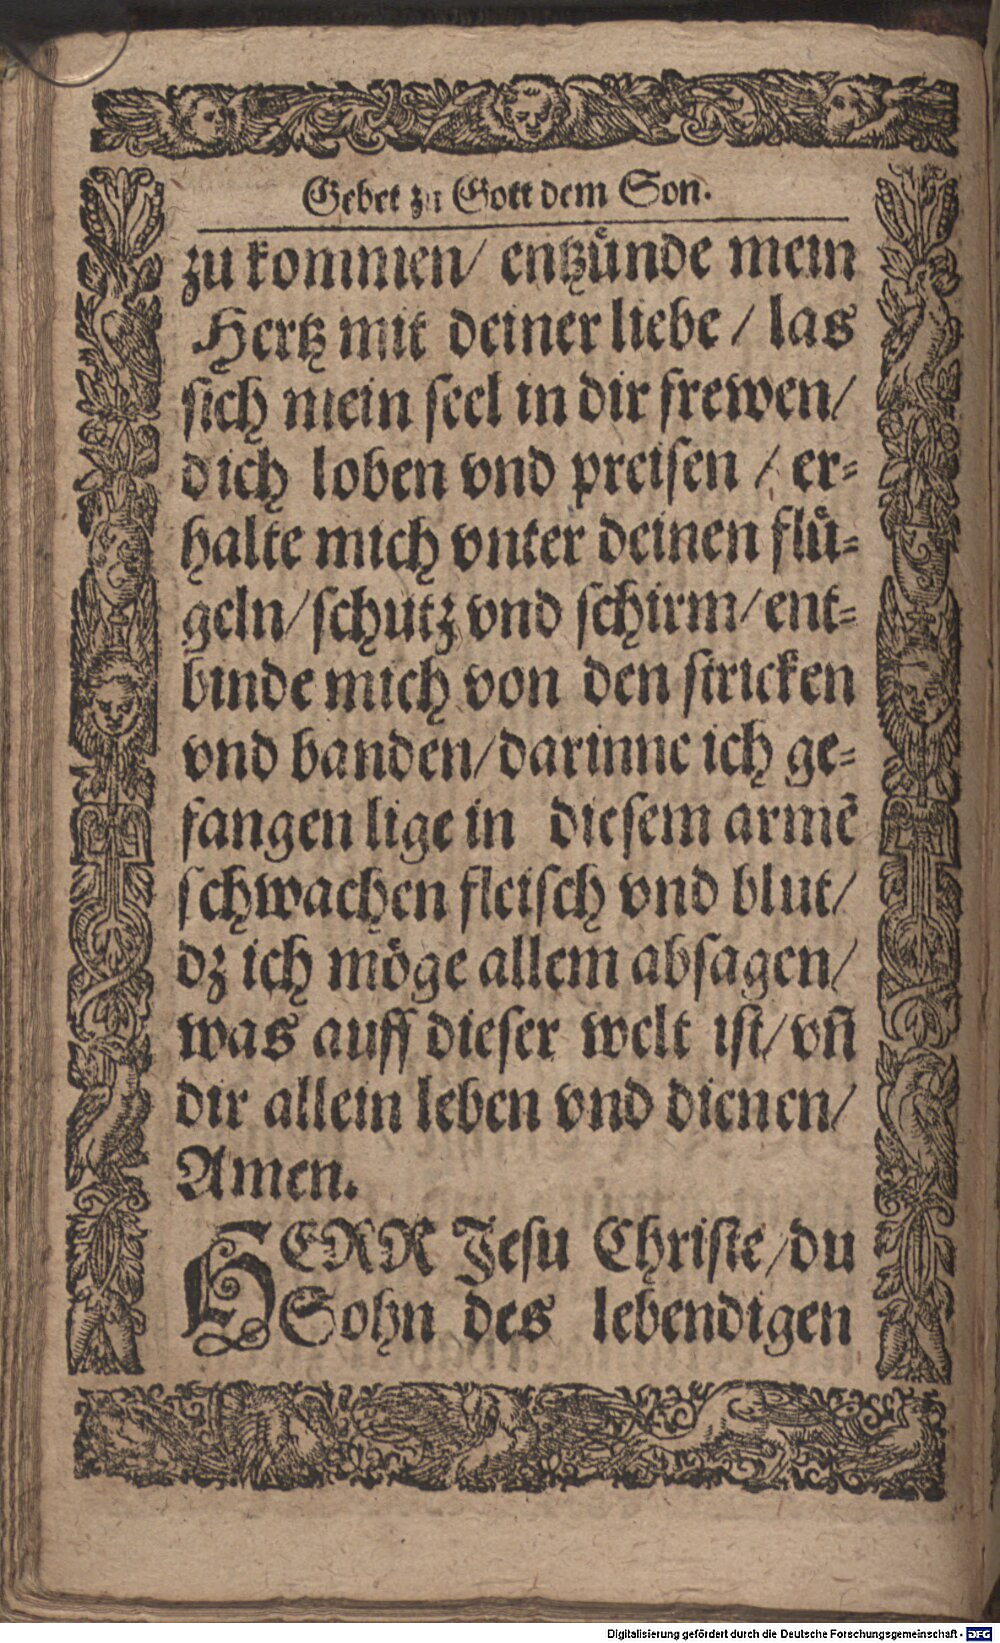 Gebet zu Gott dem Son.
zu kommen/ entzünde mein
Hertz mit deiner liebe / las
sich mein seel in dir frewen/
dich loben vnd preisen / er-
halte mich vnter deinen flü-
geln/ schutz vnd schirm/ ent-
binde mich von den stricken
vnd banden/ darinne ich ge-
fangen lige in diesem armē
schwachen fleisch vnd blut/
dz ich möge allem absagen/
was auff dieser welt ist/ vñ
dir allein leben vnd dienen/
Amen.
HERR Jesu Christe/ du
Sohn des lebendigen
Digitalisierung gefördert durch die Deutsche Forschungsgemeinschaft - DFG